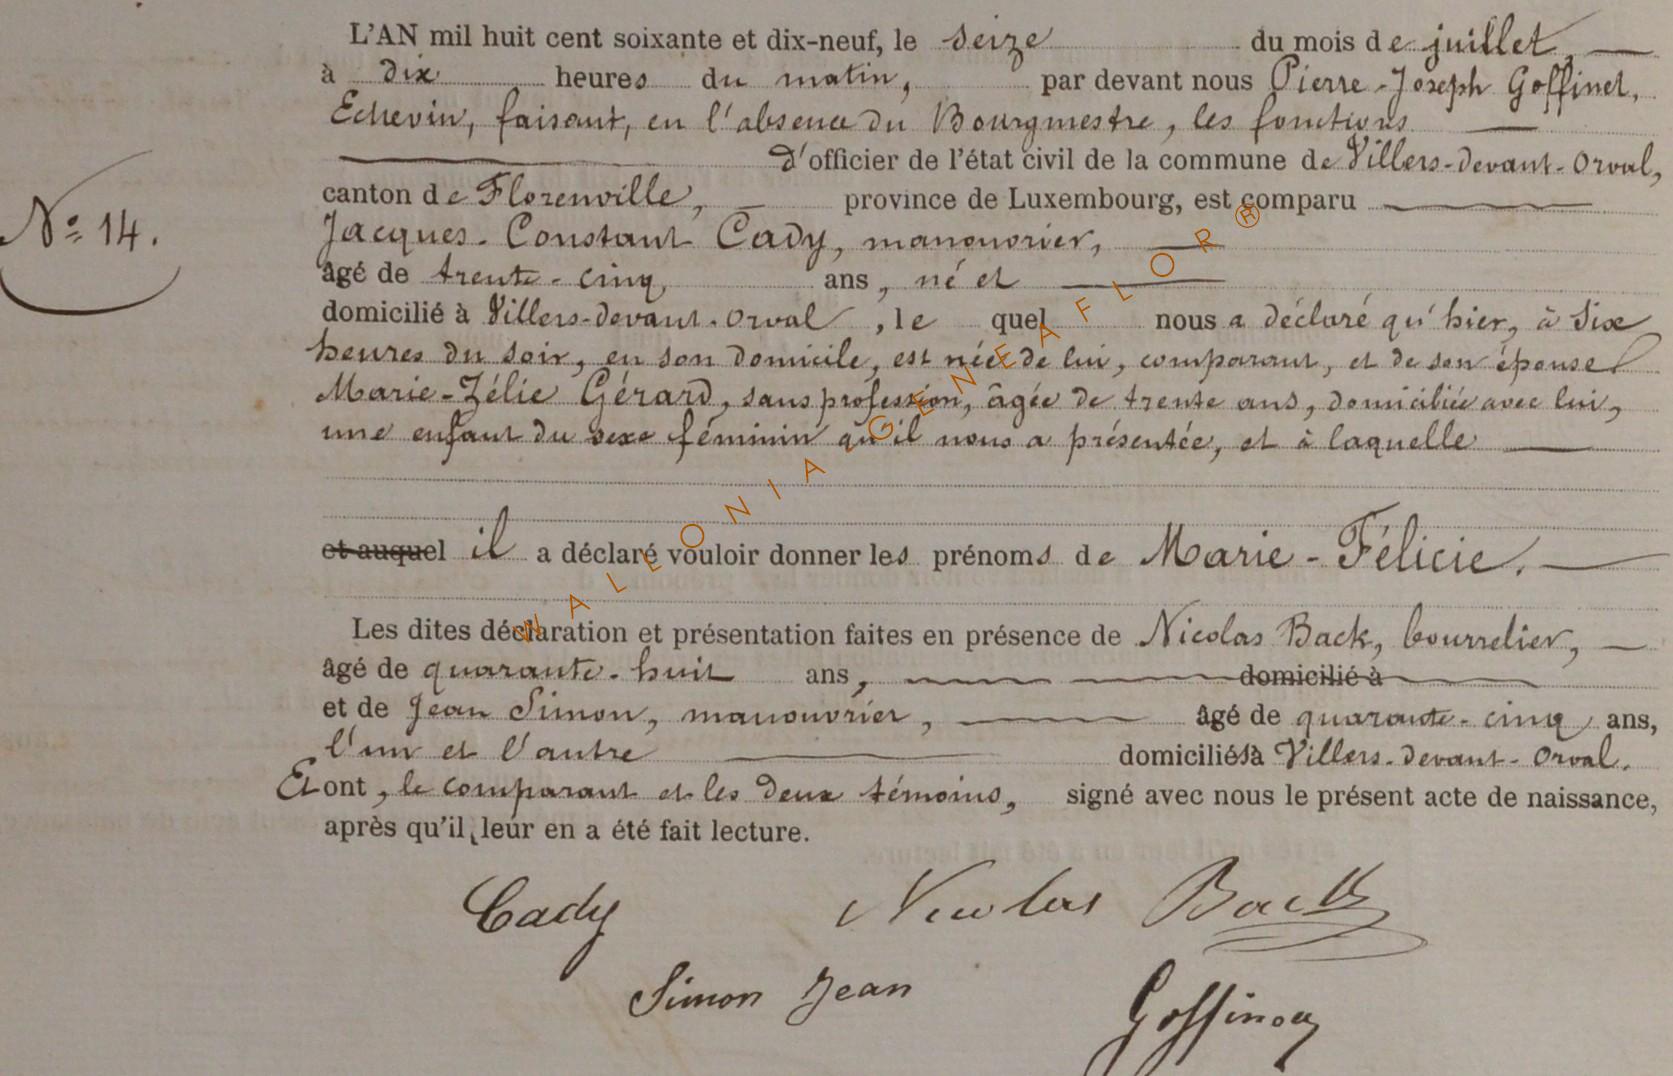 L'AN mil huit cent soixante et dix-neuf, le seize du mois de juillet,
à dix heures du matin, par devant nous Pierre-Joseph Goffinet,
Echevin, faisant, en l'absence du Bourgmestre, les fonctions
d'officier de l'état civil de la commune de Villers-devant-Orval,
canton de Florenville, province de Luxembourg, est comparu
N° 14.
Jacques-Constant Cady, manouvrier,
âgé de trente-cinq ans, né et
domicilié à Villers-devant-Orval, le quel nous a déclaré qu'hier, à six
heures du soir, en son domicile, est née de lui, comparant, et de son épouse
Marie-Zélie Gérard, sans profession, âgée de trente ans, domiciliée avec lui,
une enfant du sexe féminin qu'il nous a présentée, et à laquelle
et auquel il a déclaré vouloir donner les prénoms de Marie-Félicie.
Les dites déclaration et présentation faites en présence de Nicolas Back, bourrelier,
âgé de quarante-huit ans, domicilié à
et de Jean Simon, manouvrier, âgé de quarante-cinq ans,
l'un et l'autre domiciliés à Villers-devant-Orval.
Et ont, le comparant et les deux témoins, signé avec nous le présent acte de naissance,
après qu'il leur en a été fait lecture.
Cady Nicolas Back
Simon Jean Goffinet
WALLONIA GENEAFLOR ®